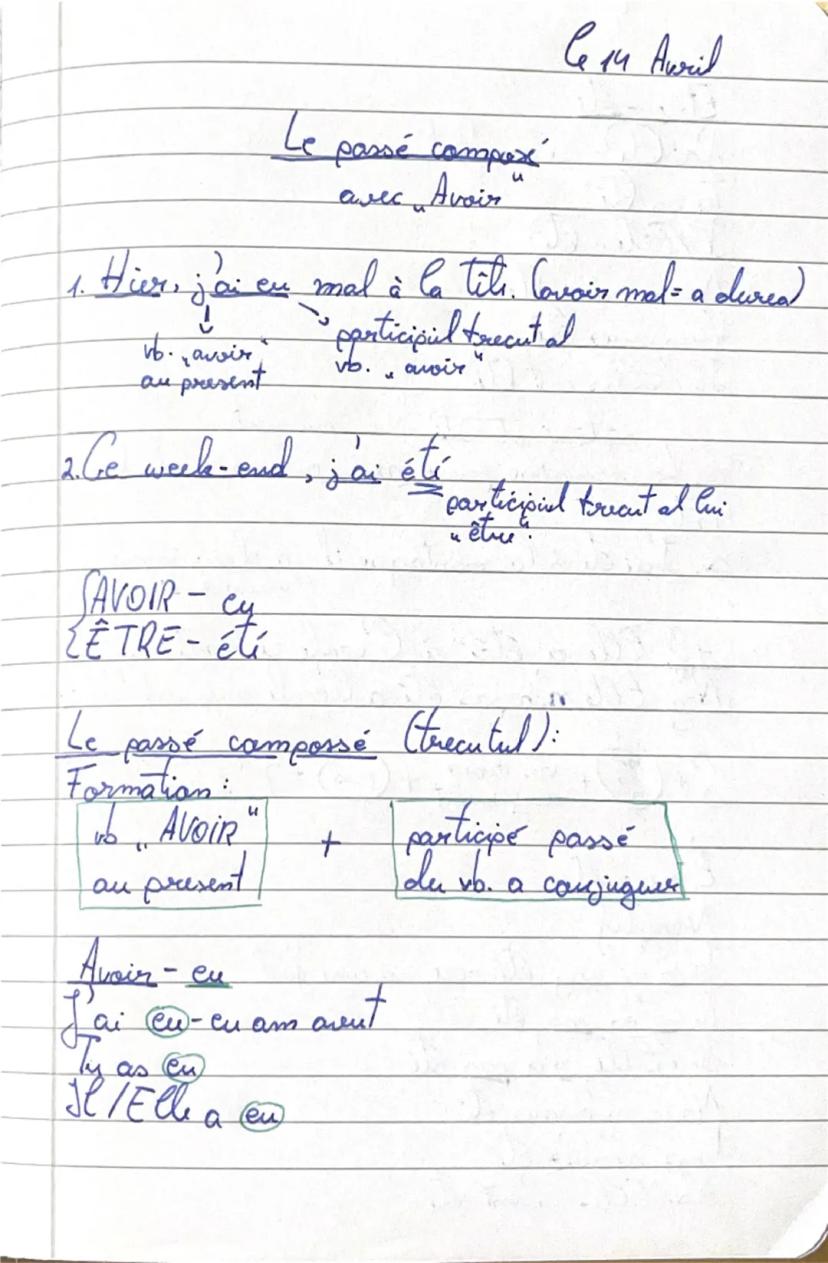 le 14 Avril
Le passé composé
avec „Avoir"
1. Hier, j'ai eu mal à la tête. (avoir mal = a durea)
vb. „avoir" participiul trecut al
au present vb. „avoir"
2. Ce week-end, j'ai été
participiul trecut al lui
„être".
AVOIR - eu
ÊTRE - été
Le passé compossé (trecutul):
Formation:
vb „AVOIR" + participé passé
au present du vb. a conjuguer
Avoir - eu
J'ai eu - eu am avut
Tu as eu
Il / Elle a eu